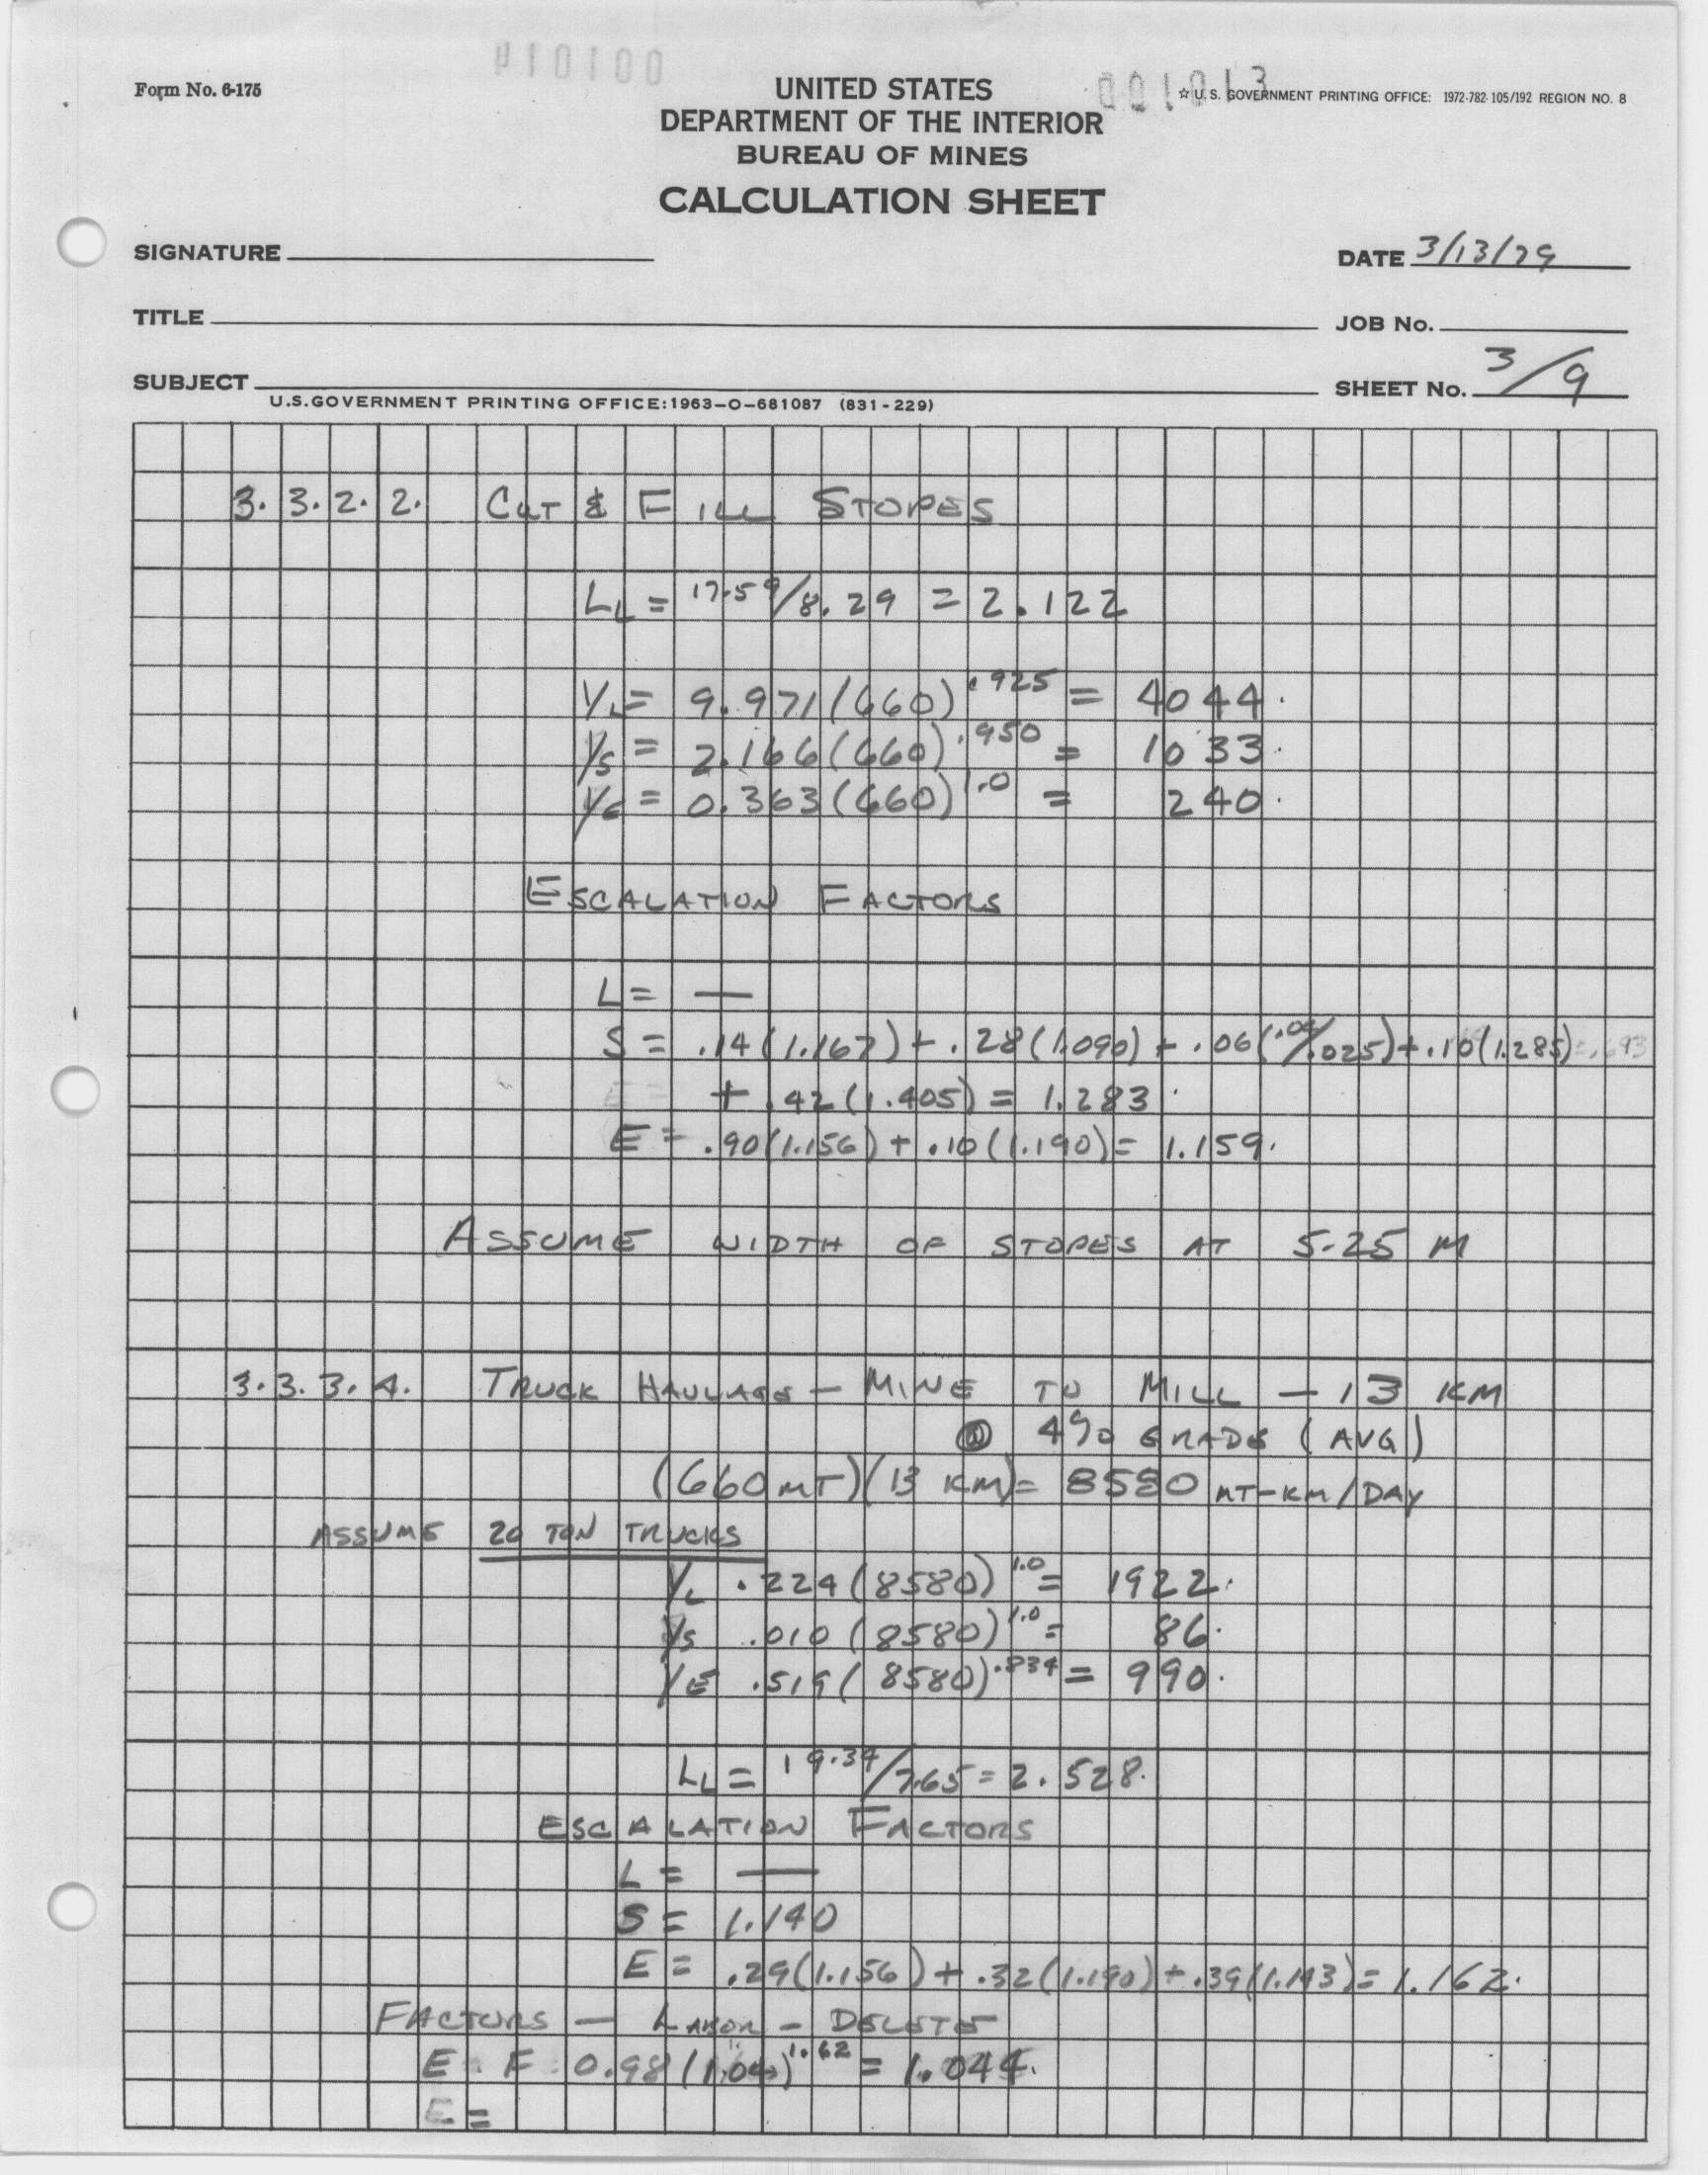 001014
001013
Form No. 6-175
UNITED STATES
☆ U. S. GOVERNMENT PRINTING OFFICE: 1972-782-105/192 REGION NO. 8
DEPARTMENT OF THE INTERIOR
BUREAU OF MINES
CALCULATION SHEET
SIGNATURE
DATE 3/13/79
TITLE
JOB No.
SUBJECT
SHEET No. 3/9
U.S.GOVERNMENT PRINTING OFFICE:1963-O-681087 (831-229)
3. 3. 2. 2. CUT & FILL STOPES
LL = 17.59/8.29 = 2.122
YL = 9.971(660)^.925 = 4044.
YS = 2.166(660)^.950 = 1033.
YE = 0.363(660)^1.0 = 240.
ESCALATION FACTORS
L = —
S = .14(1.167) + .28(1.090) + .06(/.025) + .10(1.285)
+ .42(1.405) = 1.283
E = .90(1.156) + .10(1.190) = 1.159.
ASSUME WIDTH OF STOPES AT 5.25 M
3. 3. 3. 4. TRUCK HAULAGE — MINE TO MILL — 13 KM
@ 4% GRADE (AVG)
(660 MT)(13 KM) = 8580 MT-KM/DAY
ASSUME 20 TON TRUCKS
YL .224(8580)^1.0 = 1922.
YS .010(8580)^1.0 = 86.
YE .519(8580)^.834 = 990.
LL = 19.34/7.65 = 2.528.
ESCALATION FACTORS
L = —
S = 1.140
E = .29(1.156) + .32(1.190) + .39(1.143) = 1.162.
FACTORS — LABOR — DELETE
E F 0.98(1.04)^1.62 = 1.044.
E =